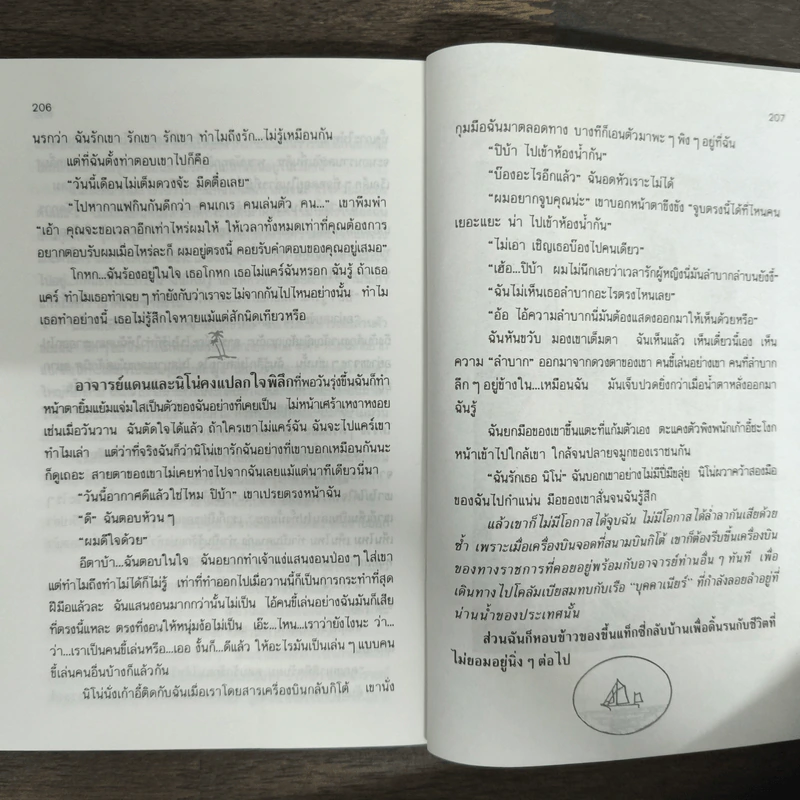 206
นรกว่า ฉันรักเขา รักเขา รักเขา ทำไมถึงรัก...ไม่รู้เหมือนกัน
แต่ที่ฉันตั้งท่าตอบเขาไปก็คือ
"วันนี้เดือนไม่เต็มดวงจ้ะ มืดตื๋อเลย"
"ไปหากาแฟกินกันดีกว่า คนเกเร คนเล่นตัว คน..." เขาพึมพำ
"เอ้า คุณจะขอเวลาอีกเท่าไหร่ผมให้ ให้เวลาทั้งหมดเท่าที่คุณต้องการ
อยากตอบรับผมเมื่อไหร่ละก็ ผมอยู่ตรงนี้ คอยรับคำตอบของคุณอยู่เสมอ"
โกหก...ฉันร้องอยู่ในใจ เธอโกหก เธอไม่แคร์ฉันหรอก ฉันรู้ ถ้าเธอ
แคร์ ทำไมเธอทำเฉย ๆ ทำยังกับว่าเราจะไม่จากกันไปไหนอย่างนั้น ทำไม
เธอทำอย่างนี้ เธอไม่รู้สึกใจหายแม้แต่สักนิดเทียวหรือ
อาจารย์แดนและนิโน่คงแปลกใจพิลึกที่พอวันรุ่งขึ้นฉันก็ทำ
หน้าตายิ้มแย้มแจ่มใสเป็นตัวของฉันอย่างที่เคยเป็น ไม่หน้าเศร้าเหงาหงอย
เช่นเมื่อวันวาน ฉันตัดใจได้แล้ว ถ้าใครเขาไม่แคร์ฉัน ฉันจะไปแคร์เขา
ทำไมเล่า แต่ว่าที่จริงฉันก็ว่านิโน่เขารักฉันอย่างที่เขาบอกเหมือนกันนะ
ก็ดูเถอะ สายตาของเขาไม่เคยห่างไปจากฉันเลยแม้แต่นาทีเดียวนี่นา
"วันนี้อากาศดีแล้วใช่ไหม ปิบ้า" เขาเปรยตรงหน้าฉัน
"ดี" ฉันตอบห้วน ๆ
"ผมดีใจด้วย"
อีตาบ้า...ฉันตอบในใจ ฉันอยากทำเจ้าแง่แสนงอนป่อง ๆ ใส่เขา
แต่ทำไมถึงทำไม่ได้ก็ไม่รู้ เท่าที่ทำออกไปเมื่อวานนี้ก็เป็นการกระทำที่สุด
ฝีมือแล้วละ ฉันแสนงอนมากกว่านั้นไม่เป็น ไอ้คนขี้เล่นอย่างฉันมันก็เสีย
ที่ตรงนี้แหละ ตรงที่งอนให้หนุ่มง้อไม่เป็น เอ๊ะ...ไหน...เราว่ายังไงนะ ว่า...
ว่า...เราเป็นคนขี้เล่นหรือ...เออ งั้นก็...ดีแล้ว ให้อะไรมันเป็นเล่น ๆ แบบคน
ขี้เล่นคนอื่นบ้างก็แล้วกัน
นิโน่นั่งเก้าอี้ติดกับฉันเมื่อเราโดยสารเครื่องบินกลับกิโต้ เขานั่ง
207
กุมมือฉันมาตลอดทาง บางทีก็เอนตัวมาพะ ๆ พิง ๆ อยู่ที่ฉัน
"ปิบ้า ไปเข้าห้องน้ำกัน"
"บ๊องอะไรอีกแล้ว" ฉันอดหัวเราะไม่ได้
"ผมอยากจูบคุณน่ะ" เขาบอกหน้าตาขึงขัง "จูบตรงนี้ได้ที่ไหนคน
เยอะแยะ น่า ไปเข้าห้องน้ำกัน"
"ไม่เอา เชิญเธอบ๊องไปคนเดียว"
"เฮ้อ...ปิบ้า ผมไม่นึกเลยว่าเวลารักผู้หญิงนี่มันลำบากลำบนยังงี้"
"ฉันไม่เห็นเธอลำบากอะไรตรงไหนเลย"
"อ้อ ไอ้ความลำบากนี่มันต้องแสดงออกมาให้เห็นด้วยหรือ"
ฉันหันขวับ มองเขาเต็มตา ฉันเห็นแล้ว เห็นเดี๋ยวนี้เอง เห็น
ความ "ลำบาก" ออกมาจากดวงตาของเขา คนขี้เล่นอย่างเขา คนที่ลำบาก
ลึก ๆ อยู่ข้างใน...เหมือนฉัน มันเจ็บปวดยิ่งกว่าเมื่อน้ำตาหลั่งออกมา
ฉันรู้
ฉันยกมือของเขาขึ้นแตะที่แก้มตัวเอง ตะแคงตัวพิงพนักเก้าอี้ชะโงก
หน้าเข้าไปใกล้เขา ใกล้จนปลายจมูกของเราชนกัน
"ฉันรักเธอ นิโน่" ฉันบอกเขาอย่างไม่มีปี่มีขลุ่ย นิโน่ผวาคว้าสองมือ
ของฉันไปกำแน่น มือของเขาสั่นจนฉันรู้สึก
แล้วเขาก็ไม่มีโอกาสได้จูบฉัน ไม่มีโอกาสได้ล่ำลากันเสียด้วย
ซ้ำ เพราะเมื่อเครื่องบินจอดที่สนามบินกิโต้ เขาก็ต้องรีบขึ้นเครื่องบิน
ของทางราชการที่คอยอยู่พร้อมกับอาจารย์ท่านอื่น ๆ ทันที เพื่อ
เดินทางไปโคลัมเบียสมทบกับเรือ "บุคคาเนียร์" ที่กำลังลอยลำอยู่ที่
น่านน้ำของประเทศนั้น
ส่วนฉันก็หอบข้าวของขึ้นแท็กซี่กลับบ้านเพื่อดิ้นรนกับชีวิตที่
ไม่ยอมอยู่นิ่ง ๆ ต่อไป